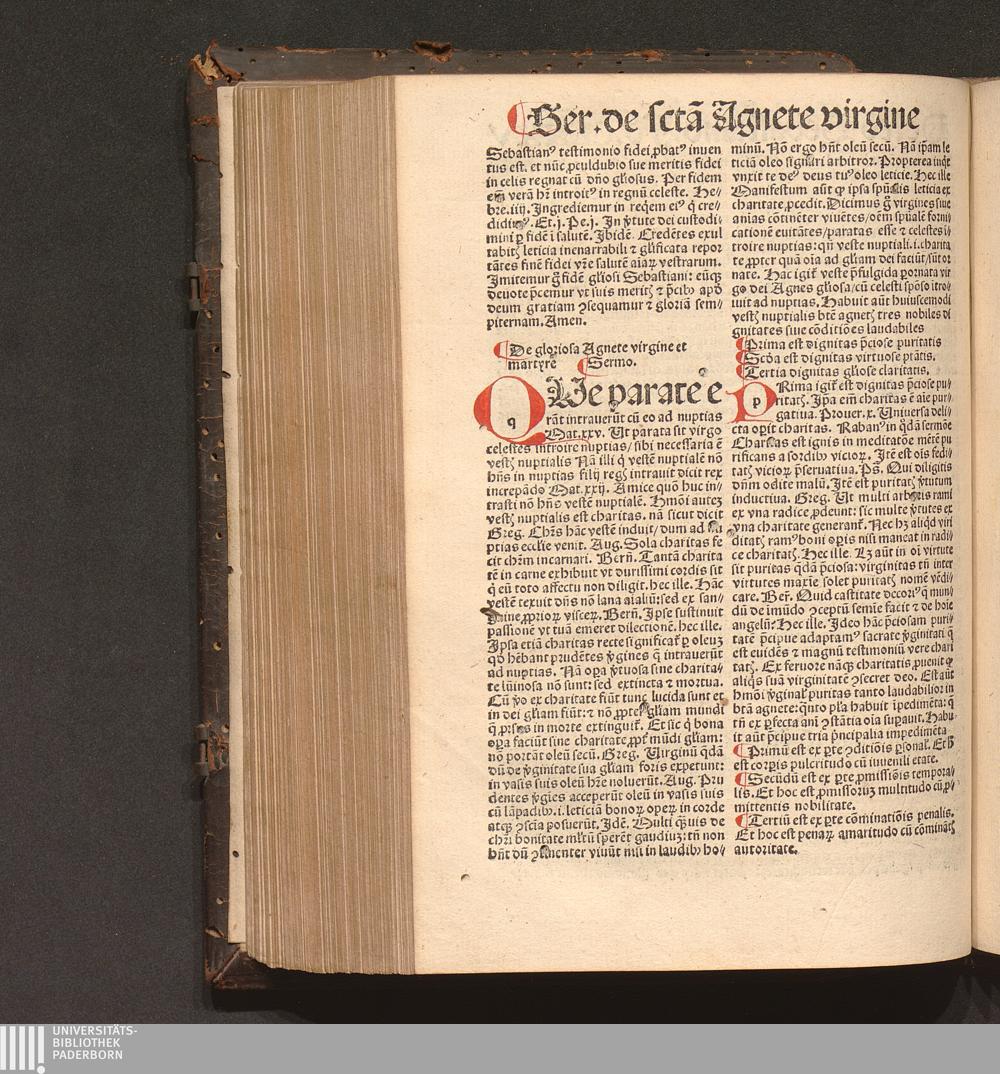 Ser. de sctã Agnete virgine
Sebastianꝰ testimonio fidei ꝓbatꝰ inuen
tus est. et nũc ꝓculdubio sue meritis fidei
in celis regnat cũ dño gl'iosus. Per fidem
em̃ verã hr̃ introitꝰ in regnũ celeste. He-
bre.iiij. Ingrediemur in reqẽm eiꝰ q̇ cre//
didimꝰ. Et.j. Pe.j. In v̓tute dei custodi-
mini ꝑ fidẽ ĩ salutẽ. Ibidẽ. Credẽtes exul
tabitꝭ leticia inenarrabili ⁊ gl'ificata repor
tãtes finẽ fidei vr̃e salutẽ aĩaꝝ vestrarum.
Imitemur g̊ fidẽ gl'iosi Sebastiani: eũqꝫ
deuote p̃cemur vt suis meritꝭ ⁊ p̃cibꝰ apd̓
deum gratiam ꝯsequamur ⁊ gloriã sem-
piternam. Amen.
De gloriosa Agnete virgine et
martyrẽ Sermo.
QUe parate e
q
rãt intrauerũt cũ eo ad nuptias
Mat.xxv. Ut parata sit virgo
celestes introire nuptias/ sibi necessaria ẽ
vestꝭ nuptialis Nã illi q̇ vestẽ nuptialẽ nõ
hñs in nuptias filij regꝭ intrauit dicit rex
increpãdo Mat.xxij. Amice quõ huc in-
trasti nõ hñs vestẽ nuptialẽ. Hmõi autẽ
vestꝭ nuptialis est charitas. nã sicut dicit
Greg. Chr̃s hãc vestẽ induit/ dum ad
ptias eccl'ie venit. Aug. Sola charitas fe
cit chr̃m incarnari. Bern̄. Tantã charita
tẽ in carne exhibuit vt durissimi cordis sit
q̇ eũ toto affectu non diligit. hec ille. Hãc
vestẽ texuit dñs nõ lana aĩaliũ: sed ex san-
guine ꝓprioꝝ visceꝝ. Bern̄. Ipse sustinuit
passionẽ vt tuã emeret dilectionẽ. hec ille.
Ipsa etiã charitas recte significat᷑ ꝑ oleuꝫ
qd̓ hẽbant prudẽtes v̓gines q̃ intrauerũt
ad nuptias. Nã oꝑa v̓tuosa sine charita-
te lũinosa nõ sunt: sed extincta ⁊ mortua.
Cũ v̓o ex charitate fiũt tunc lucida sunt et
in dei gl'iam fiũt: ⁊ nõ ꝓpter gl'iam mundi
in morte extinguit᷑. Et sic q̇ bona
oꝑa faciũt sine charitate ꝓpt̓ mũdi gl'iam:
nõ portãt oleũ secũ. Greg. Uirginũ q̃dã
dũ de v̓ginitate sua gl'iam foris expetunt:
in vasis suis oleũ hr̃e noluerũt. Aug. Pru
dentes v̓gies acceperũt oleũ in vasis suis
cũ lãpadibꝰ.i. leticiã bonoꝝ oꝑeꝝ in corde
atqꝫ ꝯsciã posuerũt. Idẽ. Multi q̃uis de
chr̃i bonitate ml'tũ sperẽt gaudiuꝫ: tñ non
hñt dũ viuũt nisi in laudibꝰ ho//
minũ. Nõ ergo hñt oleũ secũ. Nã ip̃am le
ticiã oleo signari arbitror. Propterea inq̇t
vnxit te deꝰ deus tuꝰ oleo leticie. Hec ille
Manifestum aũt ꝙ ipsa spũalis leticia ex
charitate ꝓcedit. Dicimus g̊ virgines siue
anias cõtinẽter viuẽtes/ oẽm spũalẽ forni//
cationẽ euitãtes/ paratas esse ⁊ celestes ĩ//
troire nuptias: qñ veste nuptiali .i. charita
te ꝓpter quã oĩa ad gl'iam dei faciũt/ sũt or
nate. Hac igit᷑ veste p̃fulgida ꝑornata vir
go dei Agnes gl'iosa/ cũ celesti spõso itro//
iuit ad nuptias. Habuit aũt huiuscemodi
vestꝭ nuptialis btẽ agnetꝭ tres nobiles di
gnitates siue cõditiões laudabiles
Prima est dignitas p̃ciose puritatis
Scḋa est dignitas virtuose ptãtis.
Tertia dignitas gl'iose claritatis.
p
PRima igit᷑ est dignitas p̃ciose pu//
ritatꝭ. Ip̃a em̃ charitas ẽ aĩe pur//
gatiua. Prouer.x. Uniuersa deli//
cta oꝑit charitas. Rabanꝰ in q̇dã sermõe
Charitas est ignis in meditatiõe mẽtẽ pu
rificans a sordibꝰ vicioꝝ. Itẽ est oĩs fedi//
tatꝭ vicioꝝ p̃seruatiua. Ps̃. Qui diligitis
dñm odite malũ. Itẽ est puritatꝭ v̓tutum
inductiua. Greg. Ut multi arboris rami
ex vna radice ꝓdeunt: sic multe v̓tutes ex
vna charitate generant᷑. Nec hꝫ aliqd̓ viri
ditatꝭ ramꝰ boni oꝑis nisi maneat in radi//
ce charitatꝭ. Hec ille. Lꝫ aũt in oĩ virtute
sit puritas q̃dã p̃ciosa: virginitas tñ inter
virtutes maxĩe solet puritatꝭ nomẽ vẽdi//
care. Ber̃. Quid castitate decoriꝰ q̃ mun//
dũ de ĩmũdo ꝯceptũ semĩe facit ⁊ de hoĩe
angelũ? Hec ille. Ideo hãc p̃ciosam puri//
tatẽ p̃cipue adaptamꝰ sacrate v̓ginitati q̃
est euidẽs ⁊ magnũ testimoniũ vere chari
tatꝭ. Ex feruore nãqꝫ charitatis ꝓuenit ꝙ
aliq̃s suã virginitatẽ ꝯsecret deo. Est aũt
hmõi v̓ginal' puritas tanto laudabilior in
btã agnete: q̃nto pl'a habuit ĩpedimẽta: q̃
tñ ex ꝑfecta ani ꝯstãtia oĩa suꝑauit. Habu
it aũt p̃cipue tria p̃ncipalia impedimẽta
Primũ est ex ꝑte ꝯditiõis ꝑsonal'. Et h̓
est corꝑis pulcritudo cũ iuuenili etate.
Secũdũ est ex ꝑte ꝓmissiõis tempora//
lis. Et hoc est ꝓmissoruꝫ multitudo cũ ꝓ//
mittentis nobilitate.
Tertiũ est ex ꝑte cõminatiõis penalis.
Et hoc est penaꝝ amaritudo cũ cõminãtꝭ
autoritate.
UNIVERSITÄTS-
BIBLIOTHEK
PADERBORN